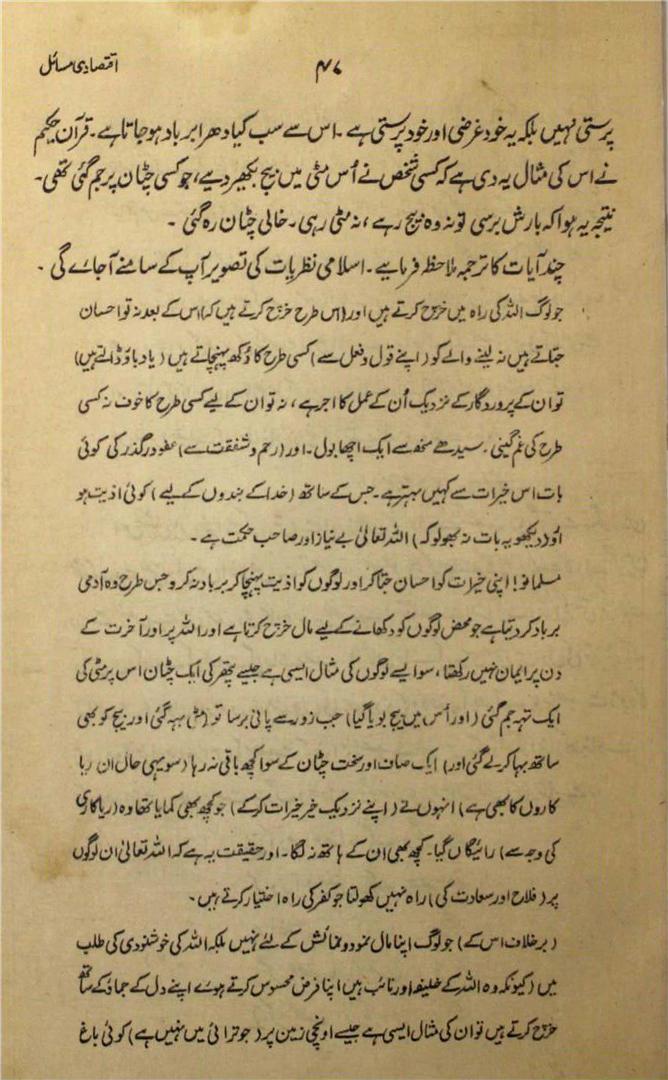 اقتصادی مسائل
۴۷
پرستی نہیں بلکہ یہ خود غرضی اور خود پرستی ہے۔ اس سے سب کیا دھرا برباد ہو جاتا ہے۔ قرآن حکیم
نے اس کی مثال یہ دی ہے کہ کسی شخص نے اُس مٹی میں بیج بکھیر دیے، جو کسی چٹان پر جم گئی تھی۔
نتیجہ یہ ہوا کہ بارش برسی تو نہ وہ بیج رہے، نہ مٹی رہی۔ خالی چٹان رہ گئی ۔
چند آیات کا ترجمہ ملاحظہ فرمایے۔ اسلامی نظریات کی تصویر آپ کے سامنے آ جائے گی ۔
جو لوگ اللہ کی راہ میں خرچ کرتے ہیں اور (اس طرح خرچ کرتے ہیں کہ) اس کے بعد نہ تو احسان
جتاتے ہیں نہ لینے والے کو (اپنے قول و فعل سے) کسی طرح کا دُکھ پہنچاتے ہیں (یا دباؤ ڈالتے ہیں)
تو ان کے پروردگار کے نزدیک اُن کے عمل کا اجر ہے، نہ تو ان کے لیے کسی طرح کا خوف نہ کسی
طرح کی غم گینی۔ سیدھے منھ سے ایک اچھا بول۔ اور (رحم و شفقت سے) عفو درگذر کی کوئی
بات اس خیرات سے کہیں بہتر ہے۔ جس کے ساتھ (خدا کے بندوں کے لیے) کوئی اذیت ہو
اور (دیکھو یہ بات نہ بھولو کہ) اللہ تعالیٰ بے نیاز اور صاحب حکمت ہے ۔
مسلمانو! اپنی خیرات کو احسان جتا کر اور لوگوں کو اذیت پہنچا کر برباد نہ کرو جس طرح وہ آدمی
برباد کر دیتا ہے جو محض لوگوں کو دکھانے کے لیے مال خرچ کرتا ہے اور اللہ پر اور آخرت کے
دن پر ایمان نہیں رکھتا، سو ایسے لوگوں کی مثال ایسی ہے جیسے پتھر کی ایک چٹان اس پر مٹی کی
ایک تہہ جم گئی (اور اُس میں بیج بویا گیا) جب زور سے پانی برسا تو (مٹی بہہ گئی اور بیج کو بھی
ساتھ بہا کر لے گئی اور) ایک صاف اور سخت چٹان کے سوا کچھ باقی نہ رہا (سو یہی حال ان ریا
کاروں کا بھی ہے) انہوں نے (اپنے نزدیک خیر خیرات کر کے) جو کچھ بھی کمایا تھا وہ (ریاکاری
کی وجہ سے) رائیگاں گیا۔ کچھ بھی ان کے ہاتھ نہ لگا۔ اور حقیقت یہ ہے کہ اللہ تعالیٰ ان لوگوں
پر (فلاح اور سعادت کی) راہ نہیں کھولتا جو کفر کی راہ اختیار کرتے ہیں۔
(برخلاف اس کے) جو لوگ اپنا مال نمود و نمائش کے لئے نہیں بلکہ اللہ کی خوشنودی کی طلب
میں (کیونکہ وہ اللہ کے خلیفہ اور نائب ہیں) اپنا فرض محسوس کرتے ہوے اپنے دل کے جماؤ کے ساتھ
خرچ کرتے ہیں تو ان کی مثال ایسی ہے جیسے اونچی زمین پر (جو ترائی میں نہیں ہے) کوئی باغ